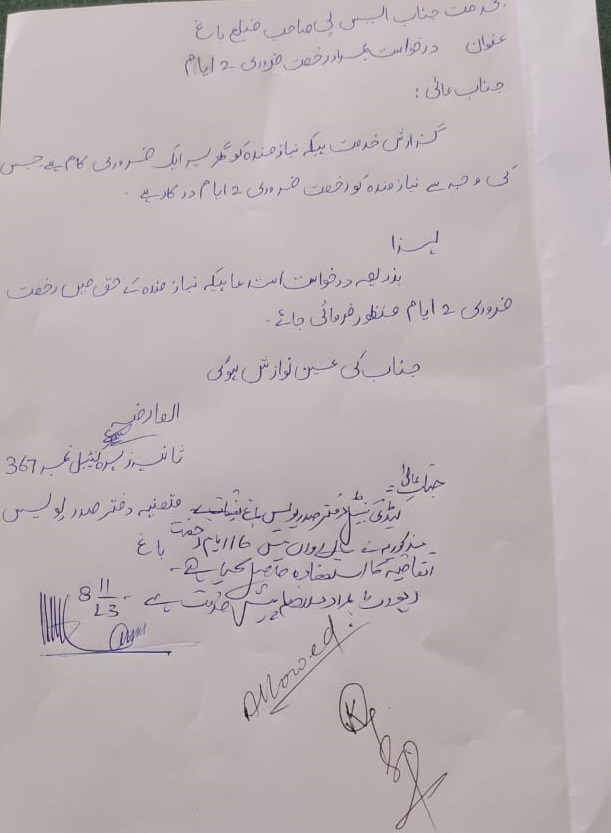 بخدمت جناب ایس پی صاحب ضلع باغ
عنوان درخواست بمراد رخصت ضروری 2 ایام
جناب عالی :
گزارش خدمت ہیکہ نیاز مندہ کو گھر پر ایک ضروری کام ہے جس
کی وجہ سے نیاز مندہ کو رخصت ضروری 2 ایام درکار ہے ۔
لہذا
بذریعہ درخواست استدعا ہیکہ نیاز مندہ کے حق میں رخصت
ضروری 2 ایام منظور فرمائی جائے ۔
جناب کی عین نوازش ہوگی
العارضہ
زہرہ کنسٹیبل نمبر 367
جناب عالی
لیڈی کنسٹیبل دفتر صدر پولیس باغ متعینہ دفتر صدر پولیس
مذکوریہ نے سال رواں میں 16 ایام رخصت باغ
اتفاقیہ کا استفادہ حاصل کیا ہے ۔
رپورٹ بمراد ملاحظہ پیش خدمت ہے ۔ 8 11/23
Allowed.
SP